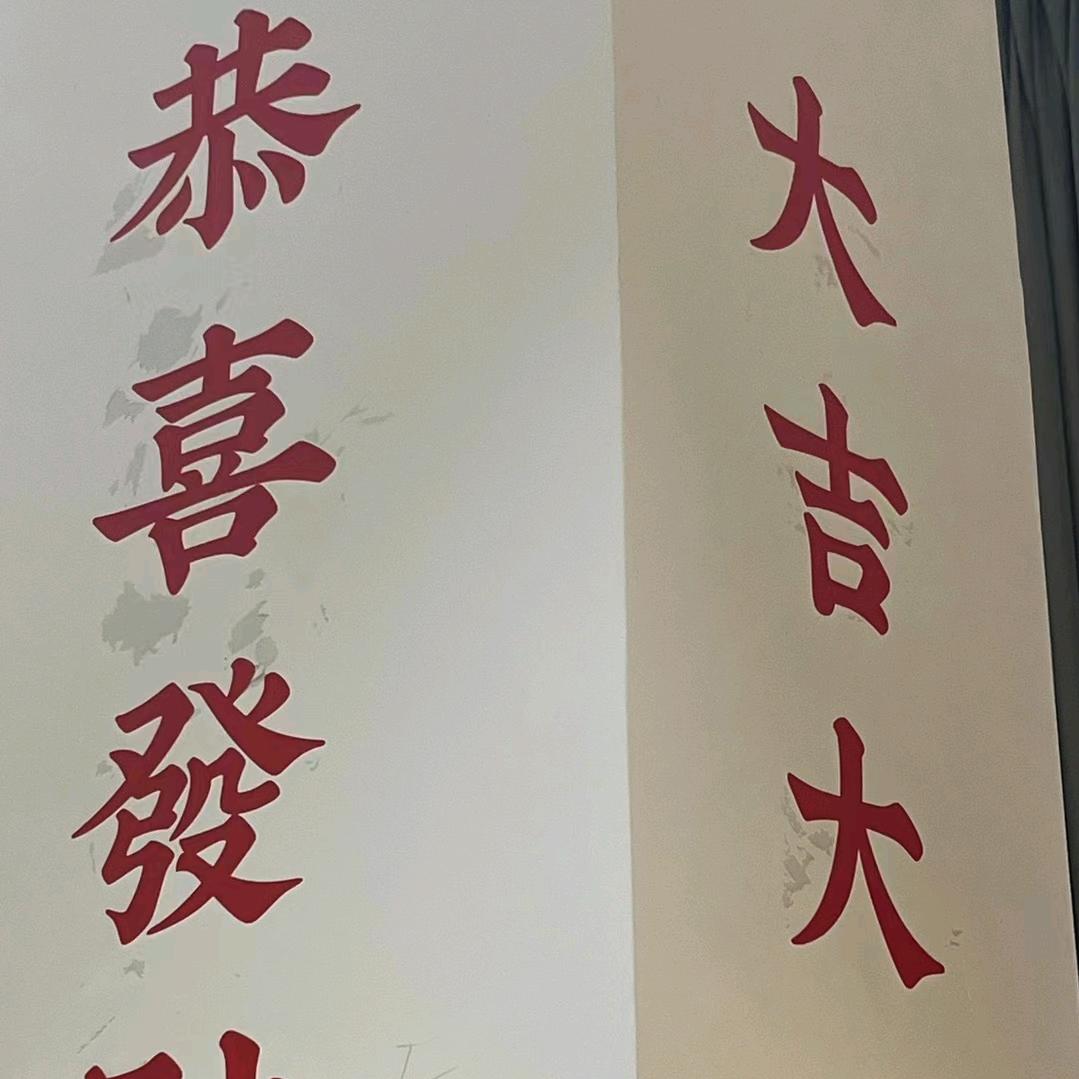 恭喜發
大吉大